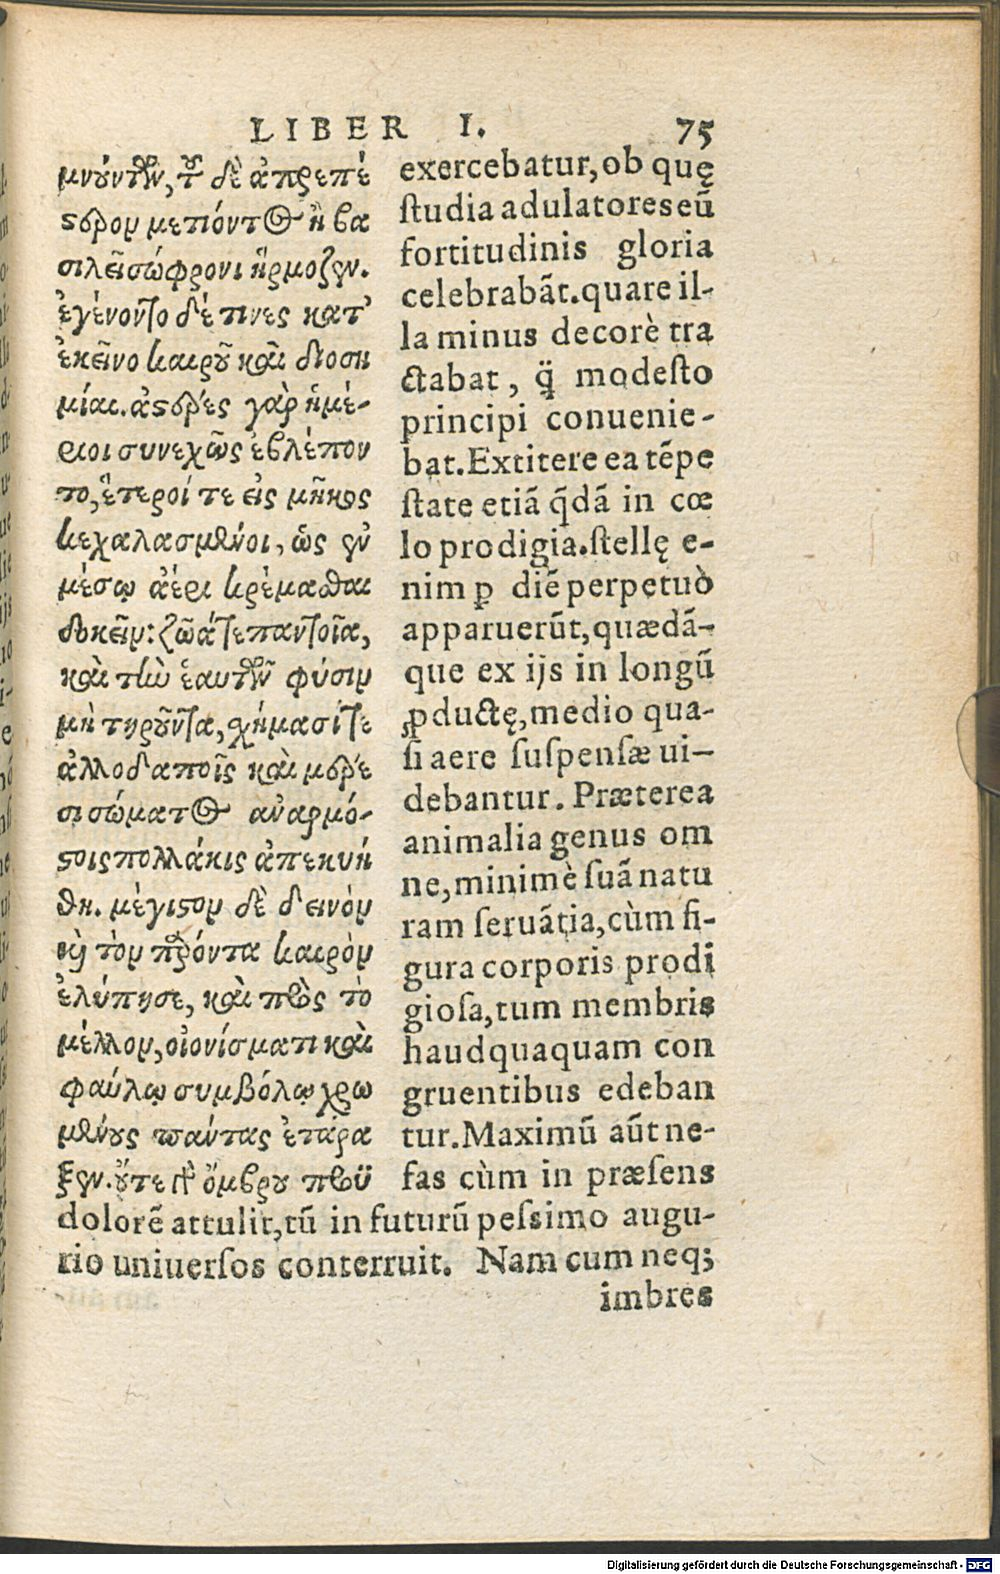 LIBER I. 75
μνούντων, τοῦ δὲ ἀπρεπέ
ςερον μετιόντος ἢ βα
σιλεῖ σώφρονι ἥρμοζεν.
ἐγένοντο δέ τινες κατ'
ἐκεῖνο καιροῦ καὶ διοση
μίαι. ἀςέρες γὰρ ἡμέ-
ριοι συνεχῶς ἐβλέπον
το, ἕτεροί τε εἰς μῆκος
κεχαλασμένοι, ὡς ἐν
μέσῳ ἀέρι κρέμασθαι
δοκεῖν: ζῶά τε παντοῖα,
καὶ τὴν ἑαυτῶν φύσιν
μὴ τηροῦντα, σχήμασί τε
ἀλλοδαποῖς καὶ μέρε
σι σώματος ἀναρμό-
ςοις πολλάκις ἀπεκυή
θη. μέγιςον δὲ δεινὸν
καὶ τὸν παρόντα καιρὸν
ἐλύπησε, καὶ πρὸς τὸ
μέλλον, οἰονίσματι καὶ
φαύλῳ συμβόλῳ χρω
μένους πάντας ἐτάρα
ξεν. οὔτε γὰρ ὄμβρου προϋ
exercebatur, ob quę
ſtudia adulatores eũ
fortitudinis gloria
celebrabãt. quare il-
la minus decorè tra
ctabat, q̃ modeſto
principi conuenie-
bat. Extitere ea tẽpe
ſtate etiã q̃dã in cœ
lo prodigia. ſtellę e-
nim ꝑ diẽ perpetuò
apparuerũt, quædã-
que ex ijs in longũ
ꝓductę, medio qua-
ſi aere ſuſpenſæ ui-
debantur. Præterea
animalia genus om
ne, minimè ſuã natu
ram ſeruãtia, cùm fi-
gura corporis prodi
gioſa, tum membris
haudquaquam con
gruentibus edeban
tur. Maximũ aũt ne-
fas cùm in præſens
dolorẽ attulit, tũ in futurũ peſsimo augu-
rio uniuerſos conterruit. Nam cum neq;
imbres
Digitalisierung gefördert durch die Deutsche Forschungsgemeinschaft - DFG